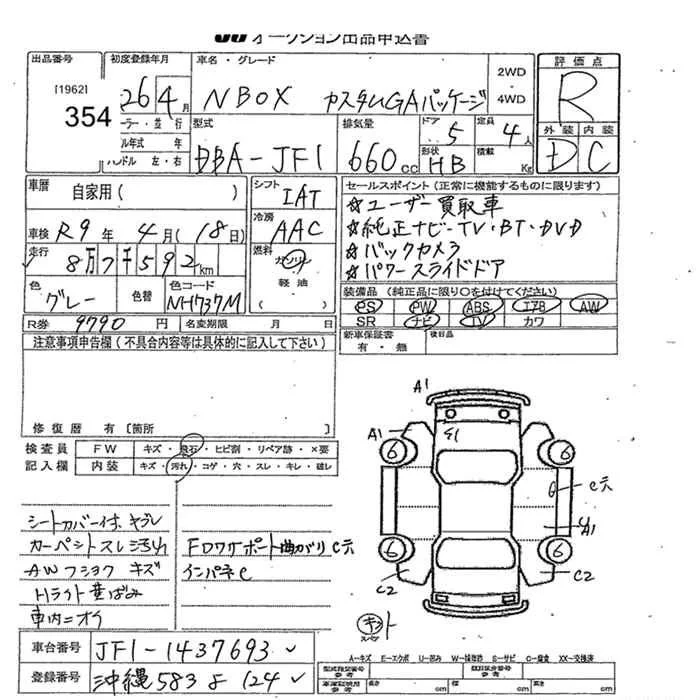 オークション出品申込書
出品番号 初度登録年月 車名・グレード 2WD・4WD 評価点
[1962] 354
26 4月 N BOX カスタムGAパッケージ R
型式 排気量 ドア 5 定員 4人 外装 内装
DBA-JF1 660cc 形状 HB 積載 Kg D C
ハンドル 左・右
車歴 自家用( ) シフト IAT セールスポイント(正常に機能するものに限ります)
車検 R9年 4月(18日) 冷房 AAC
☆ユーザー買取車
☆純正ナビ-TV・BT・DVD
☆バックカメラ
☆パワースライドドア
走行 8万7千592km 燃料 ガソリン 軽油 ( )
色 グレー 色替 色コード NH737M
装備品(純正品に限り○を付けてください)
PS PW ABS エアB AW
SR ナビ TV カワ
R券 9790円 名変期限 月 日
新車保証書 有・無 後日品
注意事項申告欄(不具合内容等は具体的に記入して下さい)
修復歴 有[箇所
検査員 FW キズ・飛石・ヒビ割・リペア跡・×要
記入欄 内装 キズ・汚れ・コゲ・穴・スレ・キレ・破レ
シートカバー付、ヤブレ
カーペットスレ汚れ
AWフショク キズ
Hライト黄ばみ
車内ニオイ
Fロワサポート曲がりC穴
インパネC
A1
A1
6 6
6 6
A1
C2 C2
キット
車台番号 JF1-1437693
登録番号 沖縄583よ124
A-キズ E-エクボ U-凹み W-補修跡 S-サビ C-腐食 XX-交換済
参考 長さ cm 幅 cm 高さ cm